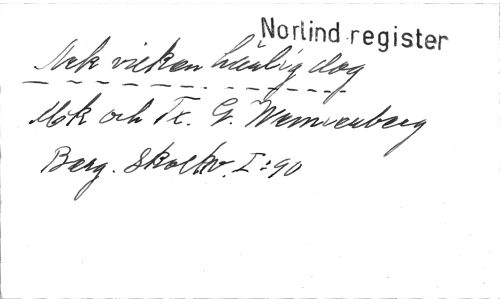 Norlind-register
Ack vilken härlig dag
Mk och Tx. G. Wennerberg
Berg. Skolkv. I:90